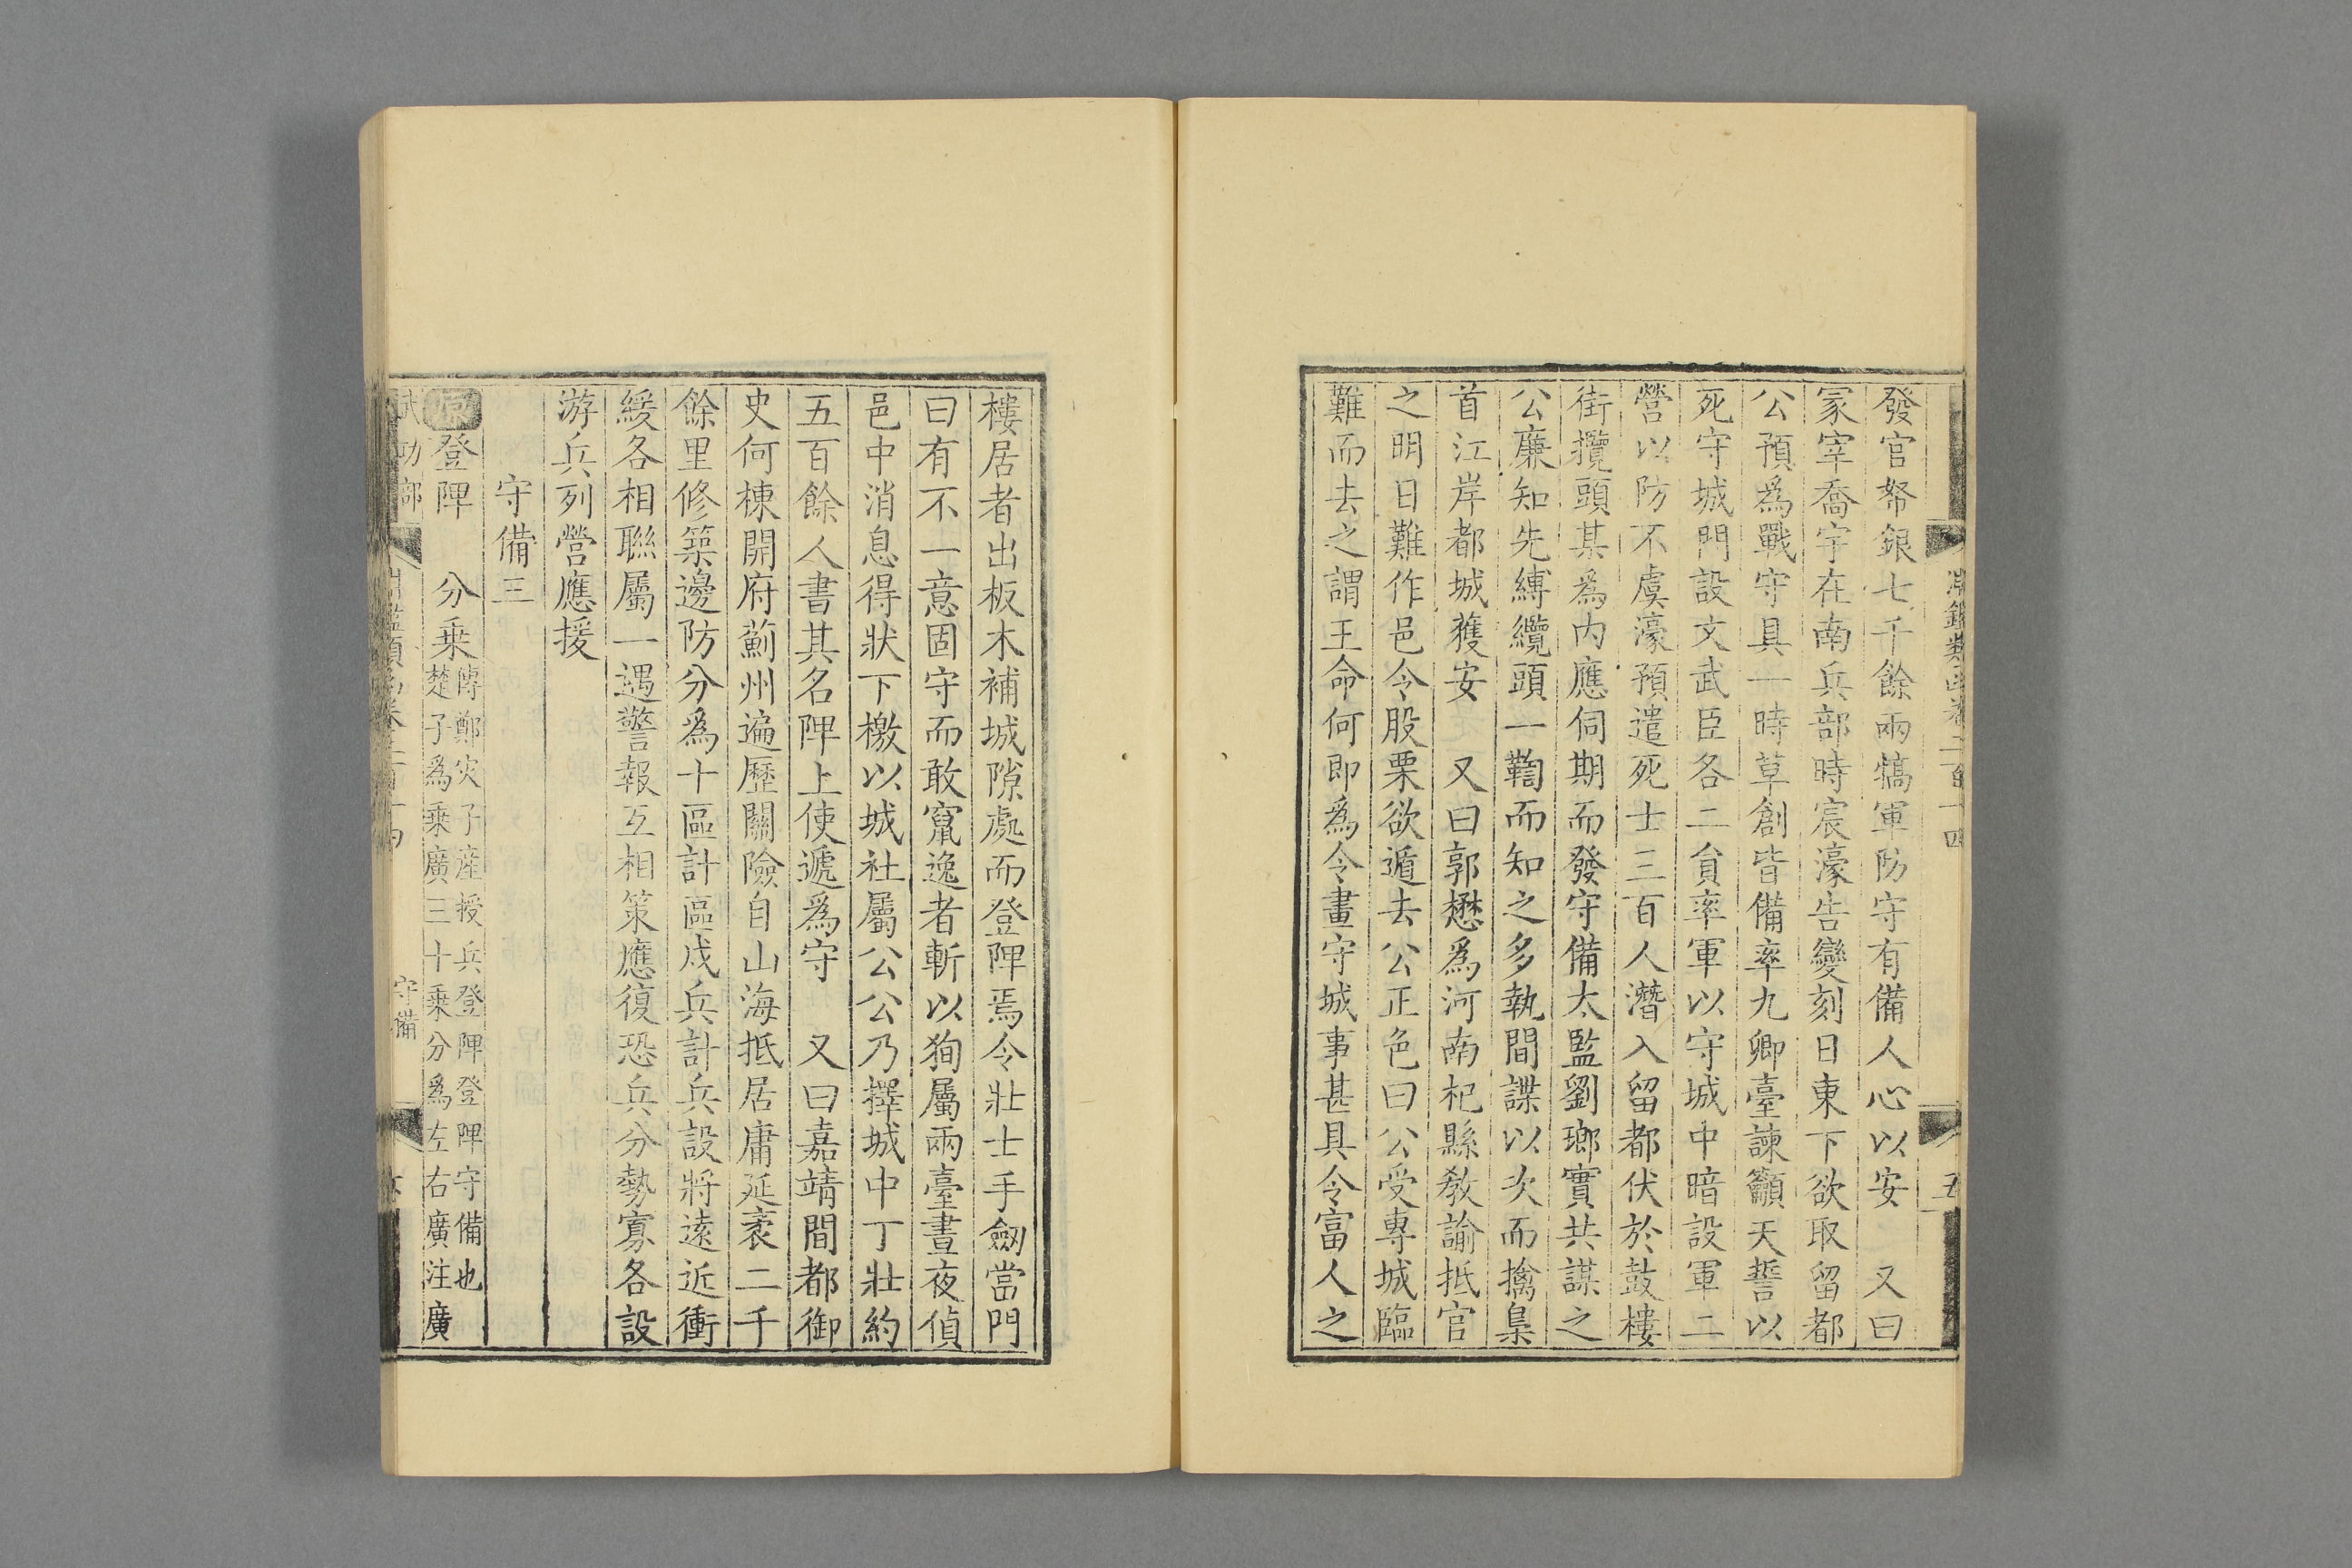 淵鑑類函卷二百一十四
五
發官帑銀七千餘兩犒軍防守有備人心以安 又曰
冢宰喬宇在南兵部時宸濠告變刻日東下欲取留都
公預爲戰守具一時草創皆備率九卿臺諫籲天誓以
死守城門設文武臣各二貟率軍以守城中暗設軍二
營以防不虞濠預遣死士三百人潛入留都伏於鼓樓
街攬頭某爲内應伺期而發守備太監劉瑯實共謀之
公廉知先縛攬頭一鞫而知之多執間諜以次而擒梟
首江岸都城獲安 又曰郭懋爲河南杞縣敎諭抵官
之明日難作邑令股栗欲遁去公正色曰公受專城臨
難而去之謂王命何即爲令畫守城事甚具令富人之
樓居者出板木補城隙處而登陴焉令壯士手劒當門
曰有不一意固守而敢竄逸者斬以狥屬兩臺晝夜偵
邑中消息得狀下檄以城社屬公公乃擇城中丁壯約
五百餘人書其名陴上使遞爲守 又曰嘉靖間都御
史何棟開府薊州遍歷關險自山海抵居庸延袤二千
餘里修築邊防分爲十區計區戍兵計兵設將遠近衝
緩各相聯屬一遇警報互相策應復恐兵分勢寡各設
游兵列營應援
守備三
原登陴 分乗傳鄭灾子産授兵登陴登陴守備也
楚子爲乗廣三十乗分爲左右廣注廣
武功部 淵鑑類函卷二百十四 守備